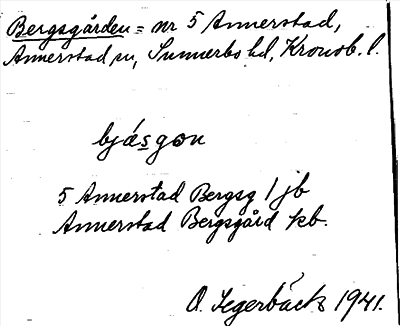 Bergsgården = nr 5 Annerstad,
Annerstad sn, Sunnerbo hd, Kronob. l.
bjæ̀sgɒn
5 Annerstad Bergsg 1 jb
Annerstad Bergsgård kb.
O. Segerbäck 1941.